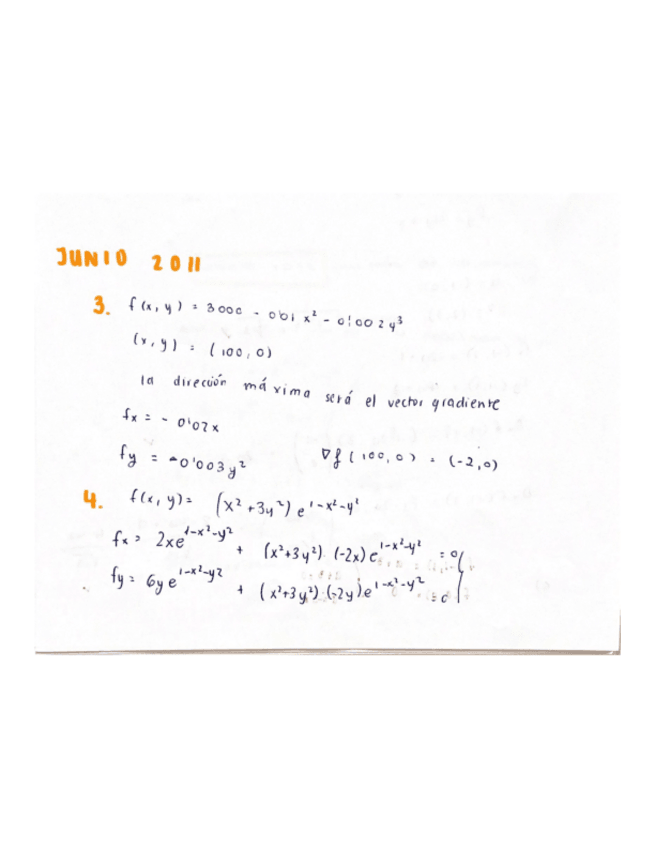 JUNIO 2011
3. f(x, y) = 3000 - 0'01 x² - 0'002 y³
(x, y) = (100, 0)
la dirección máxima será el vector gradiente
fx = - 0'02x
fy = -0'003y² ∇f (100, 0) = (-2, 0)
4. f(x, y) = (x² + 3y²) e^1-x²-y²
fx = 2xe^1-x²-y² + (x²+3y²) · (-2x) e^1-x²-y² = 0
fy = 6ye^1-x²-y² + (x²+3y²) · (-2y) e^1-x²-y² = 0